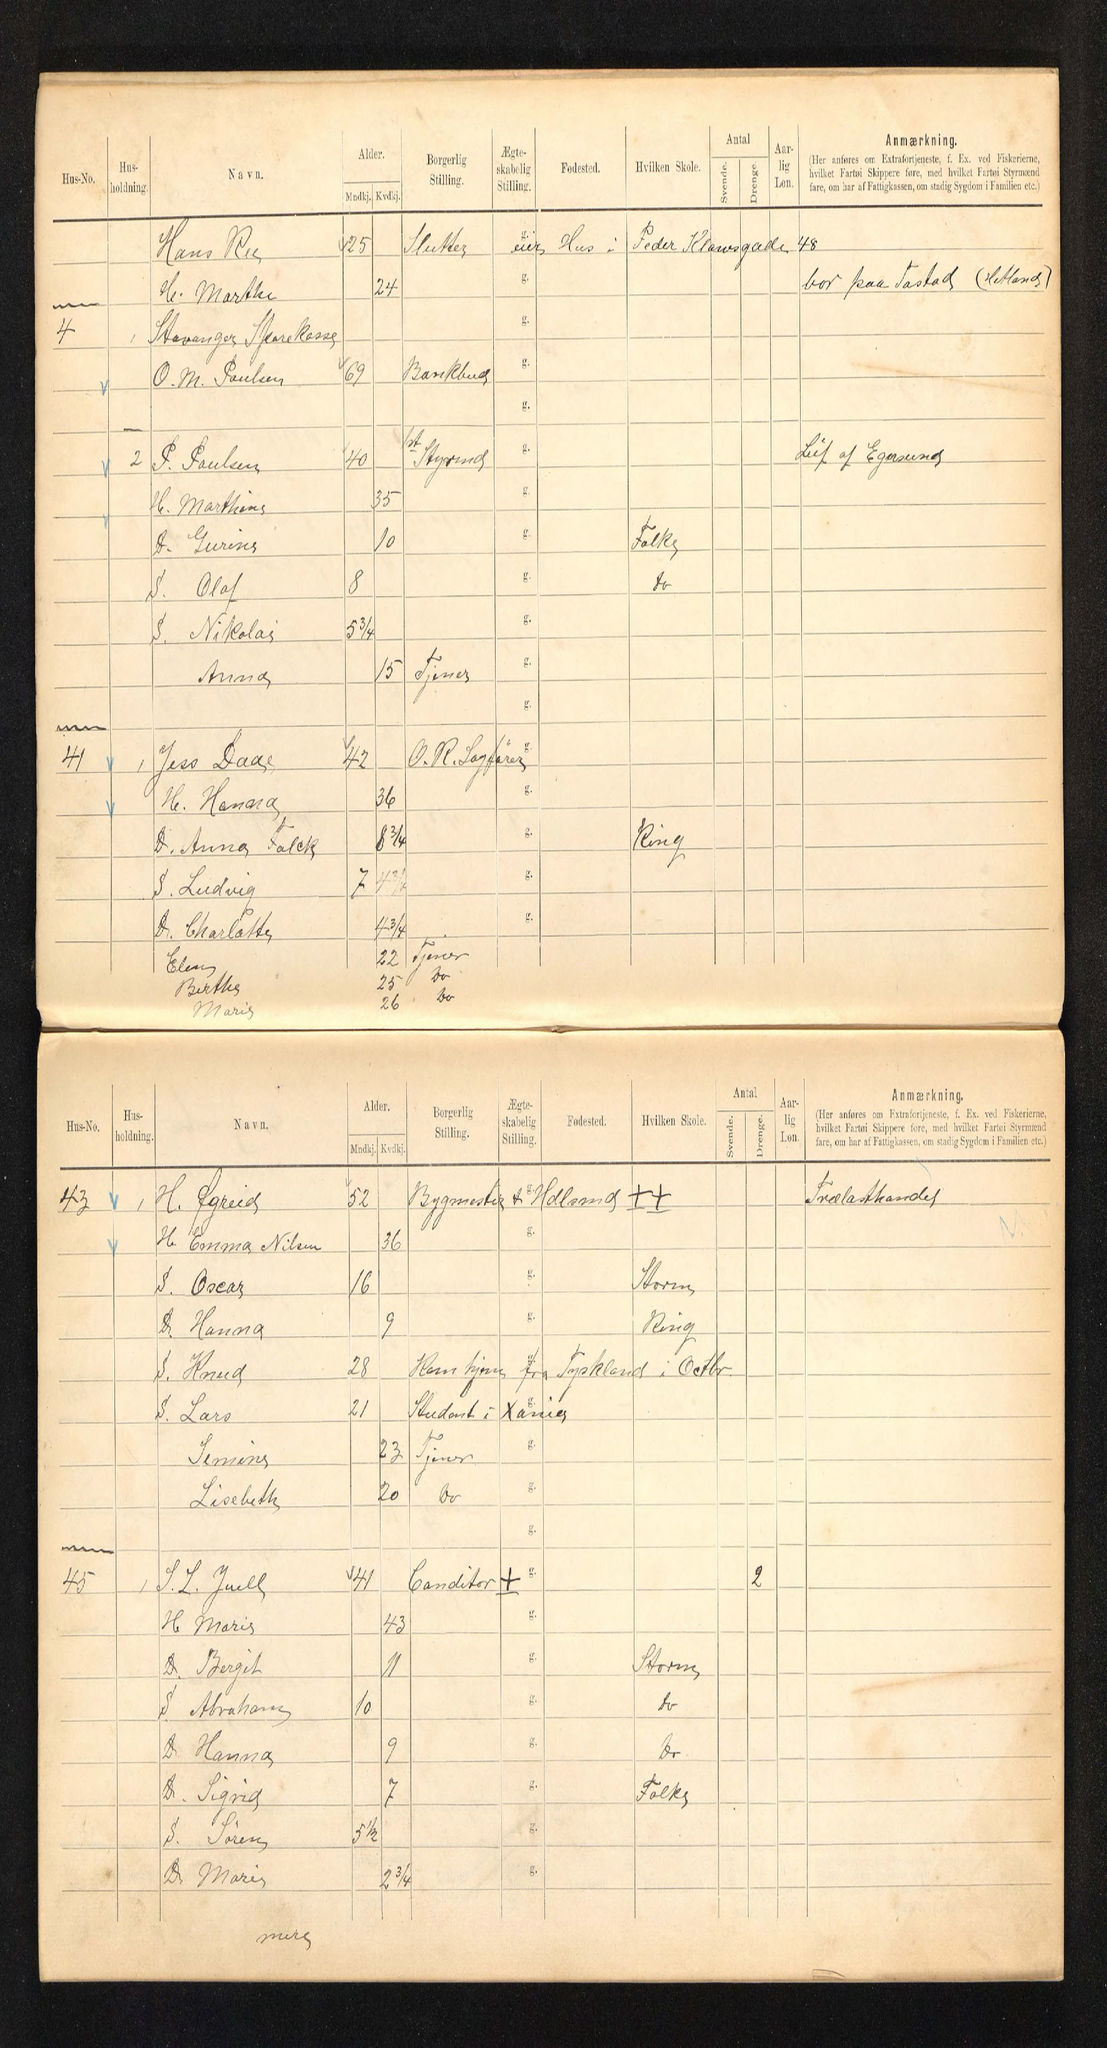 Hus-No. Hus-holdning. Navn. Alder. Mndkj. Kvdkj. Borgerlig Stilling. Ægte-skabelig Stilling. Fødested. Hvilken Skole. Antal Svende. Drenge. Aar-lig Løn. Anmærkning.
(Her anføres om Extrafortjeneste, f. Ex. ved Fiskerierne,
hvilket Fartøi Skippere føre, med hvilket Fartøi Styrmænd
fare, om har af Fattigkassen, om stadig Sygdom i Familien etc.)
Hans 25 Slutter g. eier Hus i Peder Klowsgade 48
H. Marthe 24 g. bor paa Tastad (Hetland)
4 1 Stavanger Sparekasse g.
O. M. Paulsen 69 Bankbud g.
g.
2 P. Paulsen 40 1st Styrmd g. Leif af Egersund
H. Marthine 35 g.
D. Gurine 10 g. Folke
S. Olaf 8 g. do
S. Nikolai 5 3/4 g.
Anna 15 Tjener g.
g.
41 1 Jess Daae 42 O. R. Sagfører g.
H. Hanna 36 g.
D. Anna Falck 8 3/4 g. Ring
S. Ludvig 7 g.
D. Charlotte 4 3/4 g.
Elen 22 Tjener
Berthe 25 Do
Marie 26 Do
Hus-No. Hus-holdning. Navn. Alder. Mndkj. Kvdkj. Borgerlig Stilling. Ægte-skabelig Stilling. Fødested. Hvilken Skole. Antal Svende. Drenge. Aar-lig Løn. Anmærkning.
(Her anføres om Extrafortjeneste, f. Ex. ved Fiskerierne,
hvilket Fartøi Skippere føre, med hvilket Fartøi Styrmænd
fare, om har af Fattigkassen, om stadig Sygdom i Familien etc.)
43 1 H. Øgreid 52 Bygmester & g. Hdlsmd ++ Trælasthandel
H Emma Nilsen 36 g.
S. Oscar 16 g. Storm
D. Hanna 9 g. Ring
S. Knud 28 Kom hjem fra Tyskland i Octbr.
S. Lars 21 Student i Xania g.
23 Tjener g.
Lisebeth 20 Do g.
g.
45 1 S. L. Juell 41 Conditor + g. 2
H Marie 43 g.
D. Bergit 11 g. Storm
S Abraham 10 g. do
D. Hanna 9 g. Do
D. Sigrid 7 g. Folke
S. Søren 5 1/2 g.
D. Marie 2 3/4 g.
mere